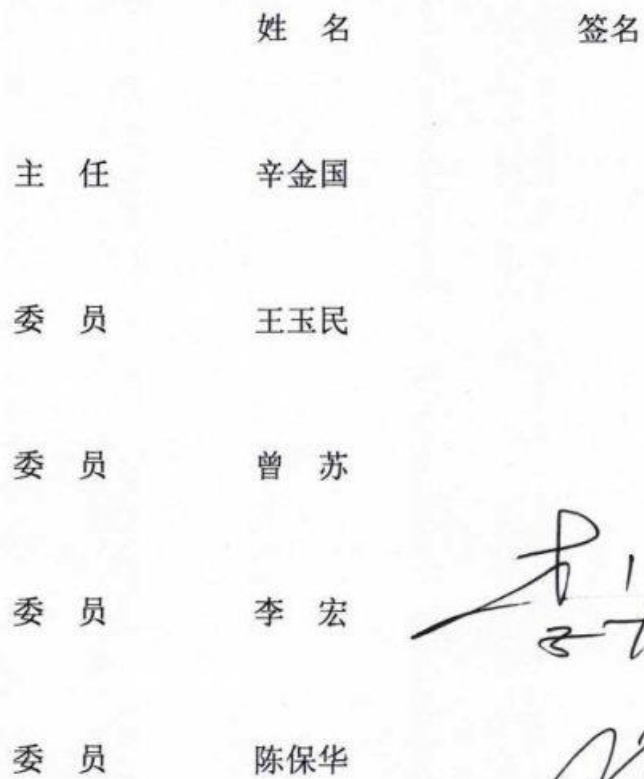 姓 名 签名
主 任 辛金国
委 员 王玉民
委 员 曾 苏
委 员 李 宏
委 员 陈保华